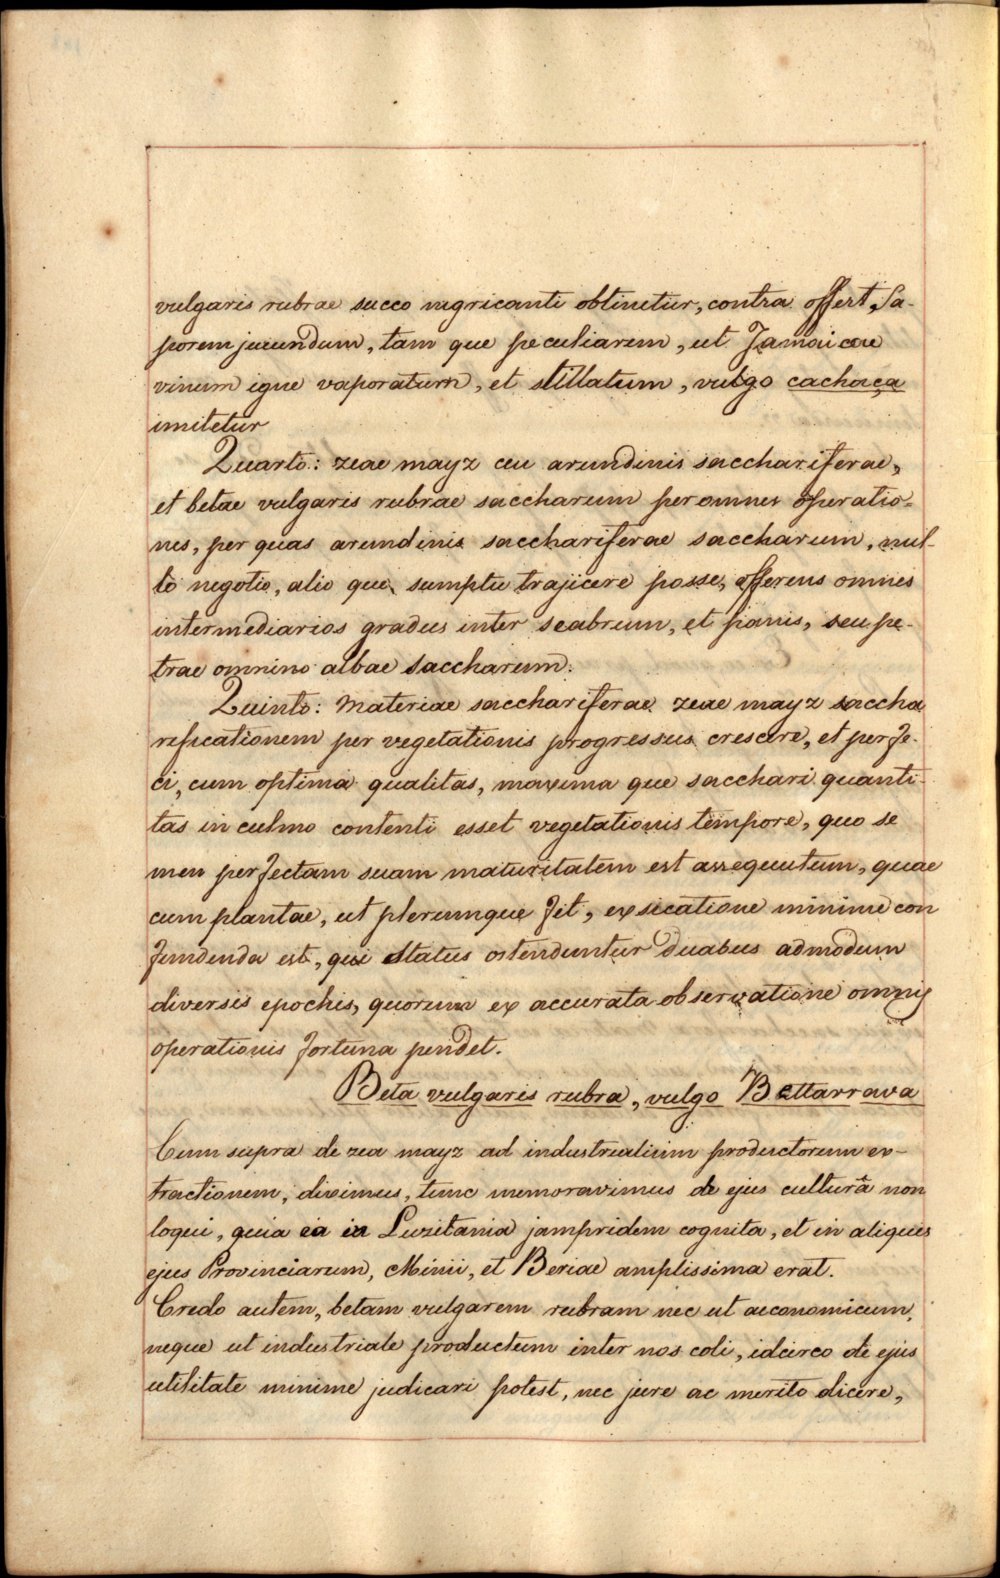 vulgaris rubrae succo nigricanti obtinetur, contra offert sa-
porem jucundum, tam que peculiarem, ut Jamaicae
vinum igne vaporatum, et stillatum, vulgo cachaça
imitetur
Quarto: zeae mayz ceu arundinis sacchariferae,
et betae vulgaris rubrae saccharum per omnes operatio-
nes, per quas arundinis sacchariferae saccharum, nul-
lo negotio, alio que sumptu trajicere posse, offerens omnes
intermediarios gradus inter scabrum, et panis, seu pe-
trae omnino albae saccharum.
Quinto: Materiae sacchariferae zeae mayz saccha
rificationem per vegetationis progressus crescere, et perfi-
ci, cum optima qualitas, maxima que sacchari quanti-
tas in culmo contenti esset vegetationis tempore, quo se
men perfectam suam maturitatem est assequutum, quae
cum plantae, ut plerumque fit, exsicatione minime con
fundenda est, qui status ostenduntur duabus admodum
diversis epochis, quorum ex accurata observatione omnis
operationis fortuna pendet.
Beta vulgaris rubra, vulgo Bettarrava
Cum supra de zea mayz ad industrialium productorum ex-
tractionem, diximus, tunc memoravimus de ejus culturâ non
loqui, quia ea in Luzitania jampridem cognita, et in aliquis
ejus Provinciarum, Minii, et Beriae amplissima erat.
Credo autem, betam vulgarem rubram nec ut aeconomicum,
neque ut industriale productum inter nos coli, idcirco de ejus
utilitate minime judicari potest, nec jure ac merito dicere,